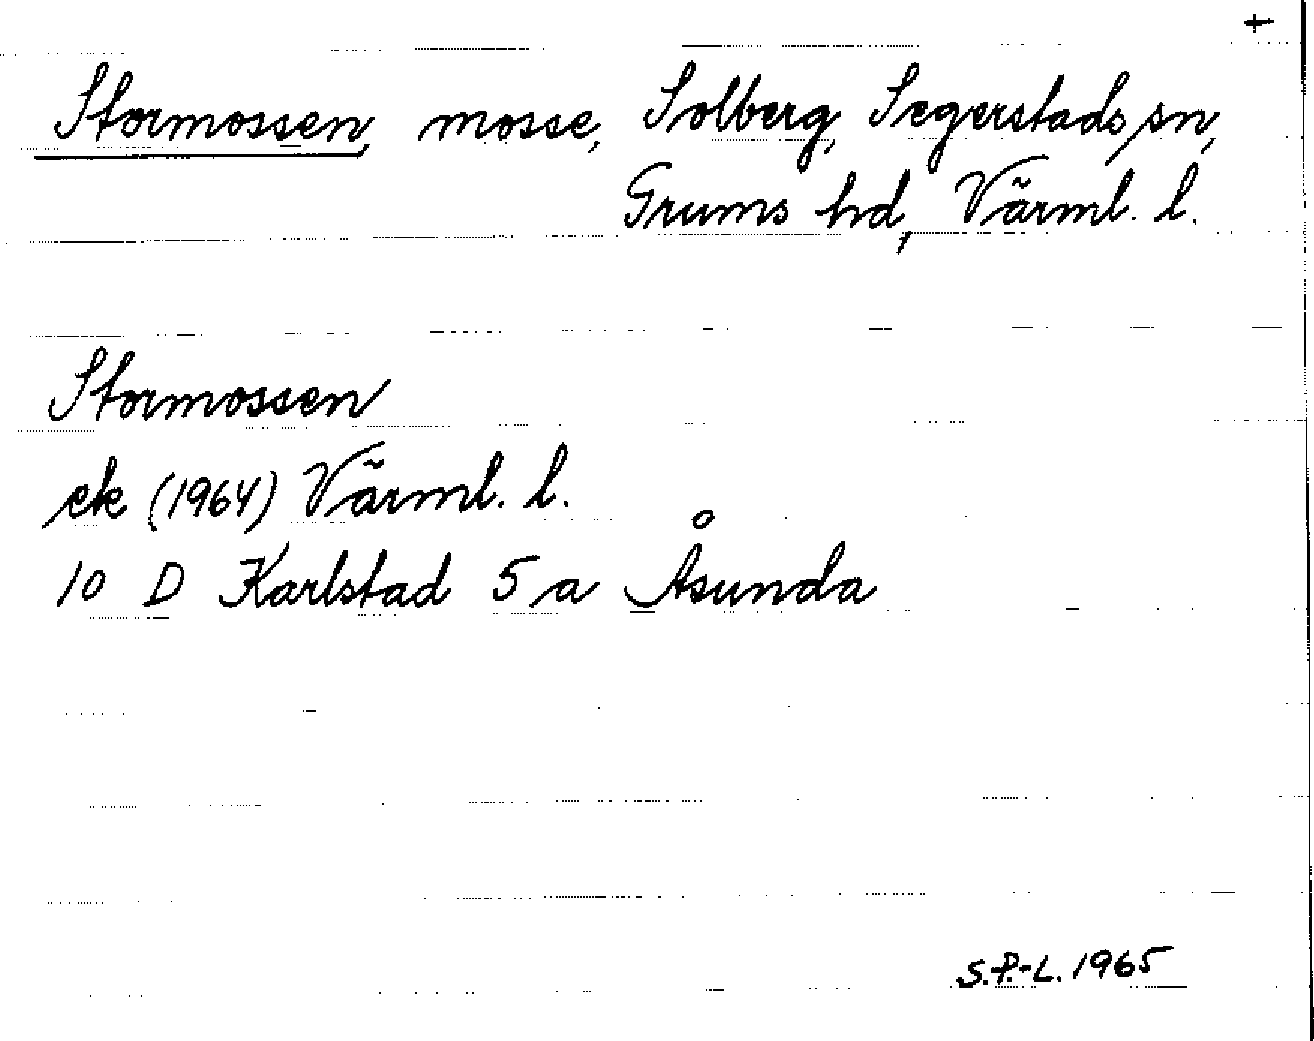 +
Stormossen, mosse, Solberg, Segerstads sn,
Grums hd, Värml. l.
Stormossen
ek (1964) Värml. l.
10 D Karlstad 5 a Åsunda
S.P.-L. 1965